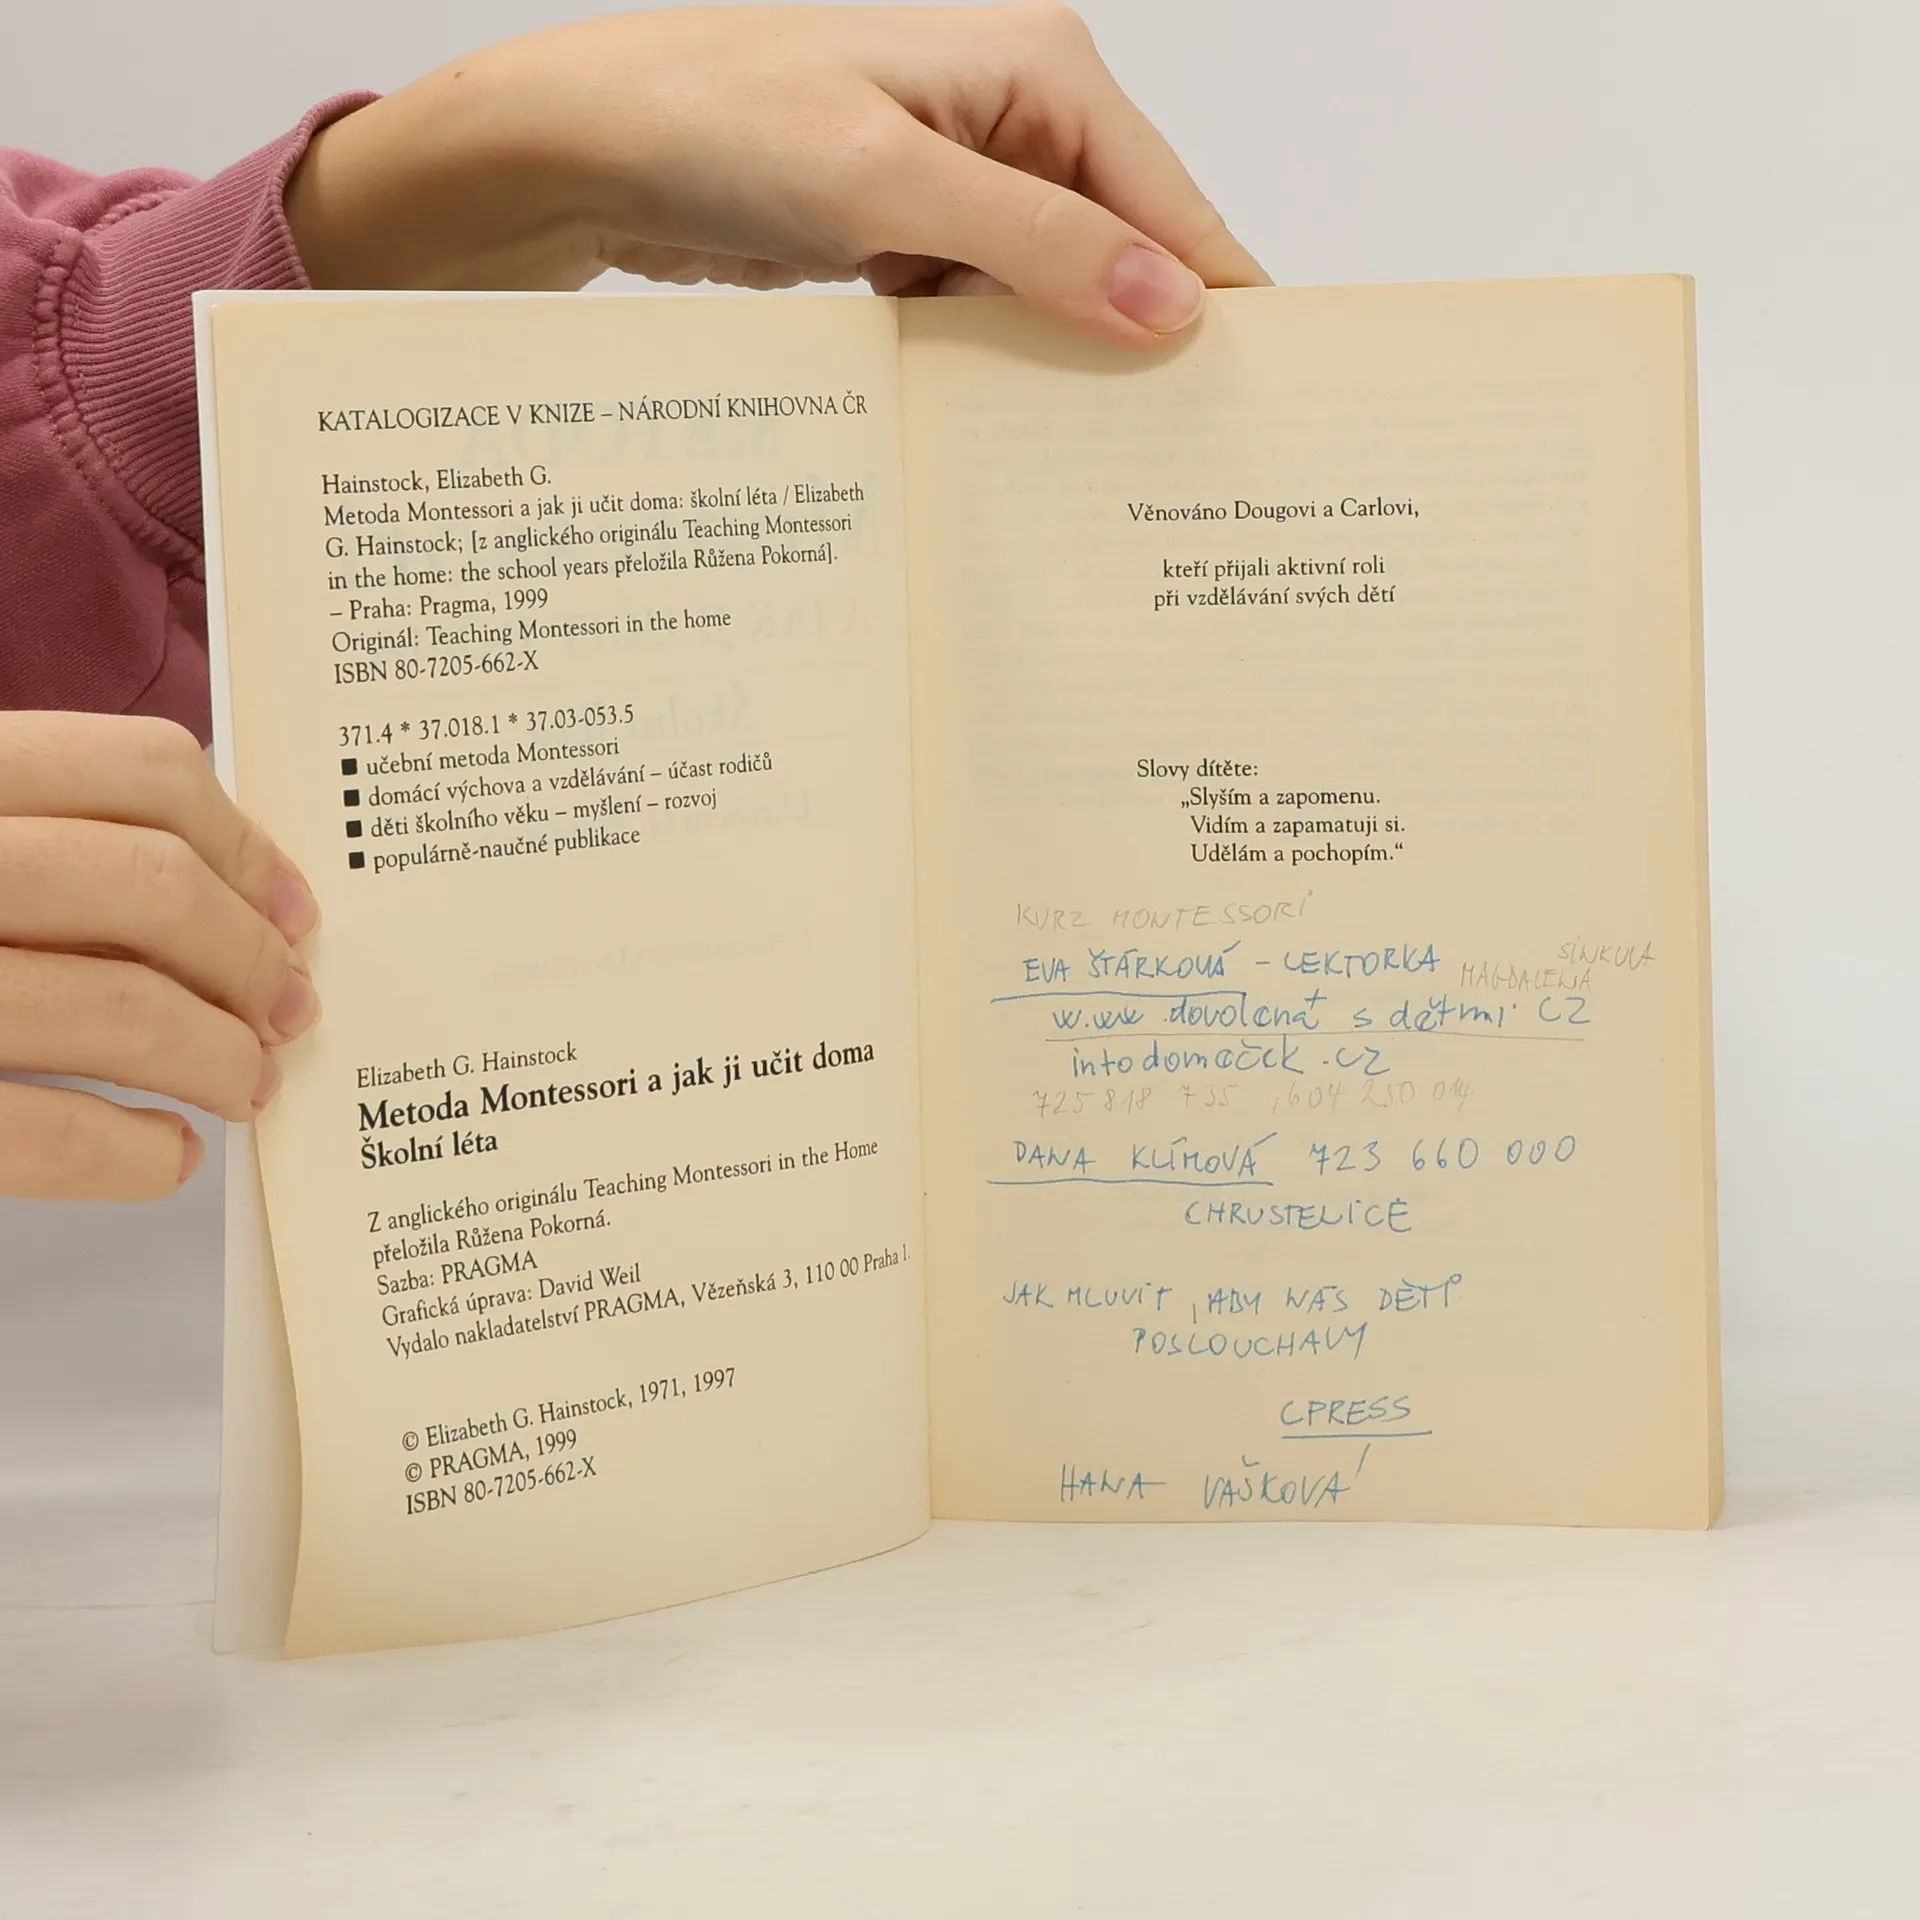 KATALOGIZACE V KNIZE – NÁRODNÍ KNIHOVNA ČR
Hainstock, Elizabeth G.
Metoda Montessori a jak ji učit doma: školní léta / Elizabeth
G. Hainstock; [z anglického originálu Teaching Montessori
in the home: the school years přeložila Růžena Pokorná].
– Praha: Pragma, 1999
Originál: Teaching Montessori in the home
ISBN 80-7205-662-X
371.4 * 37.018.1 * 37.03-053.5
■ učební metoda Montessori
■ domácí výchova a vzdělávání – účast rodičů
■ děti školního věku – myšlení – rozvoj
■ populárně-naučné publikace
Elizabeth G. Hainstock
Metoda Montessori a jak ji učit doma
Školní léta
Z anglického originálu Teaching Montessori in the Home
přeložila Růžena Pokorná.
Sazba: PRAGMA
Grafická úprava: David Weil
Vydalo nakladatelství PRAGMA, Vězeňská 3, 110 00 Praha 1.
© Elizabeth G. Hainstock, 1971, 1997
© PRAGMA, 1999
ISBN 80-7205-662-X
Věnováno Dougovi a Carlovi,
kteří přijali aktivní roli
při vzdělávání svých dětí
Slovy dítěte:
„Slyším a zapomenu.
Vidím a zapamatuji si.
Udělám a pochopím.“
KURZ MONTESSORI
EVA ŠTÁRKOVÁ – LEKTORKA
MAGDALENA
www.dovolená s dětmi CZ
domeček.cz
725 818 735, 604 250 014
DANA KLÍMOVÁ 723 660 000
CHRUSTELICE
JAK MLUVIT, ABY NÁS DĚTI
POSLOUCHALY
CPRESS
HANA VAŠKOVÁ